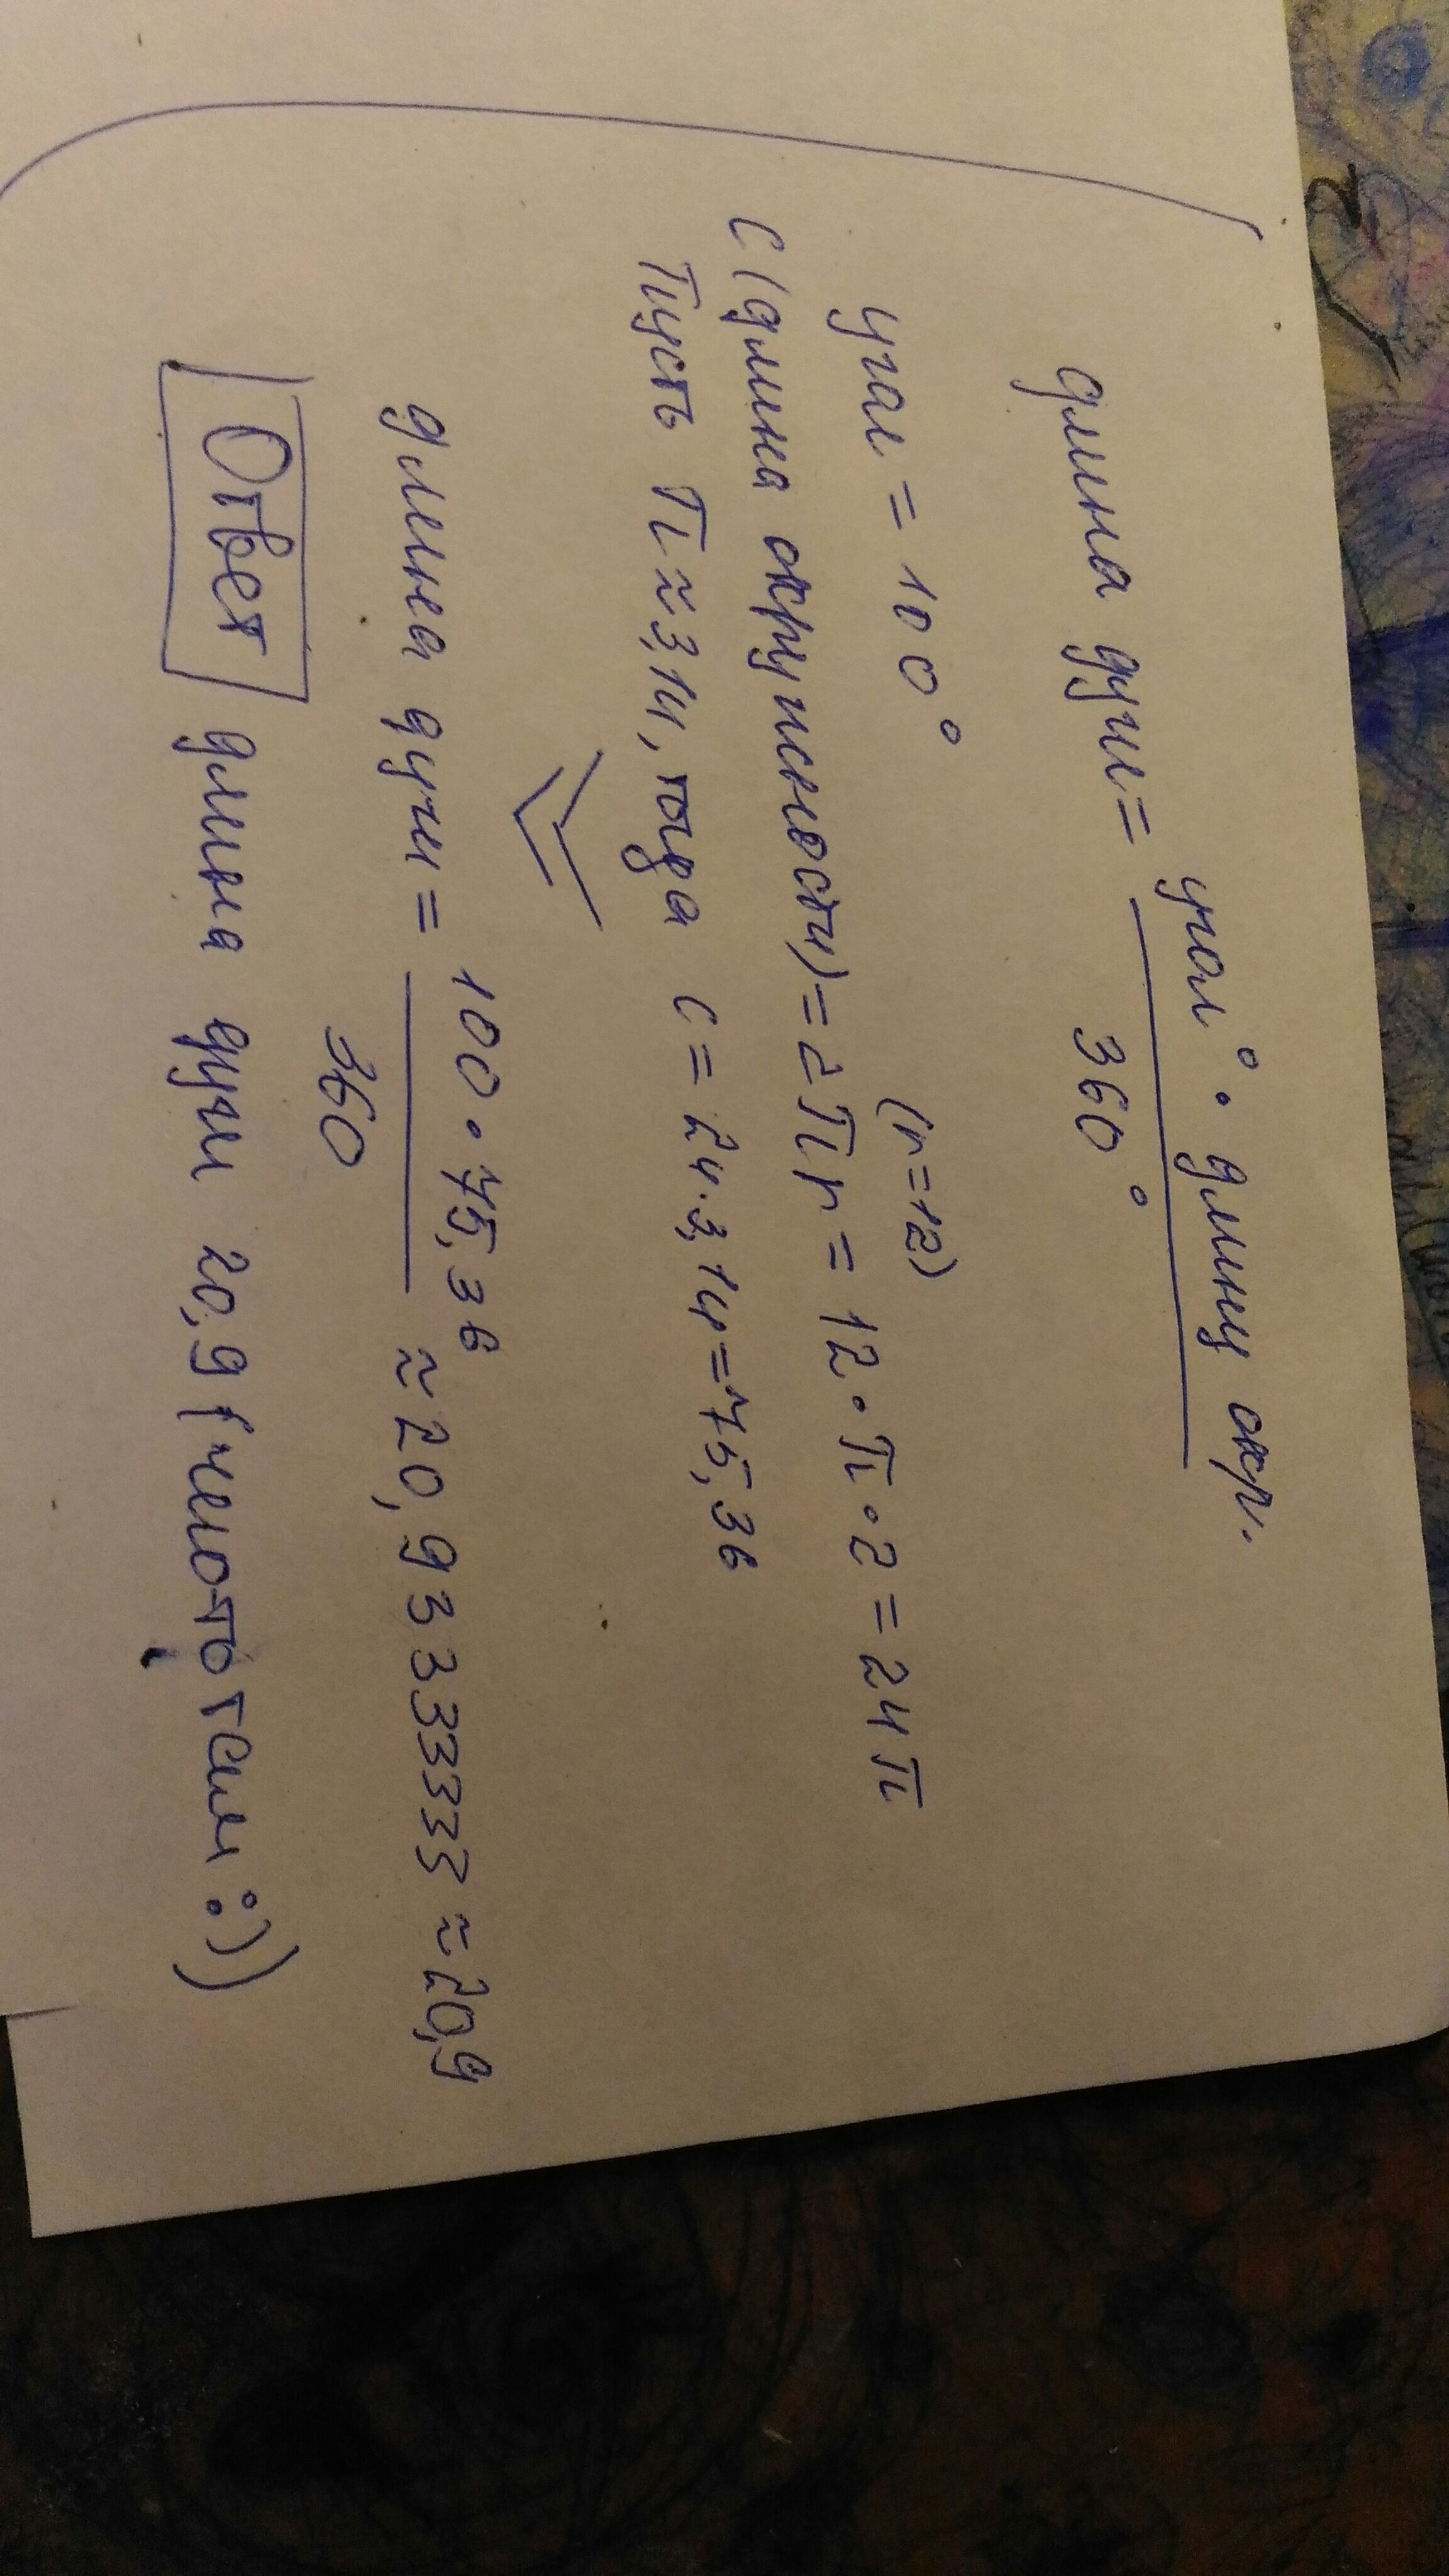 длина дуги = угол° · длину окр.
360°
угол = 100°
(r=12)
С (длина окружности) = 2πr = 12 · π · 2 = 24π
Пусть π ≈ 3,14, тогда С = 24 · 3,14 = 75,36
длина дуги = 100 · 75,36 ≈ 20,9333333 ≈ 20,9
360
Ответ длина дуги 20,9 (чего-то там :))